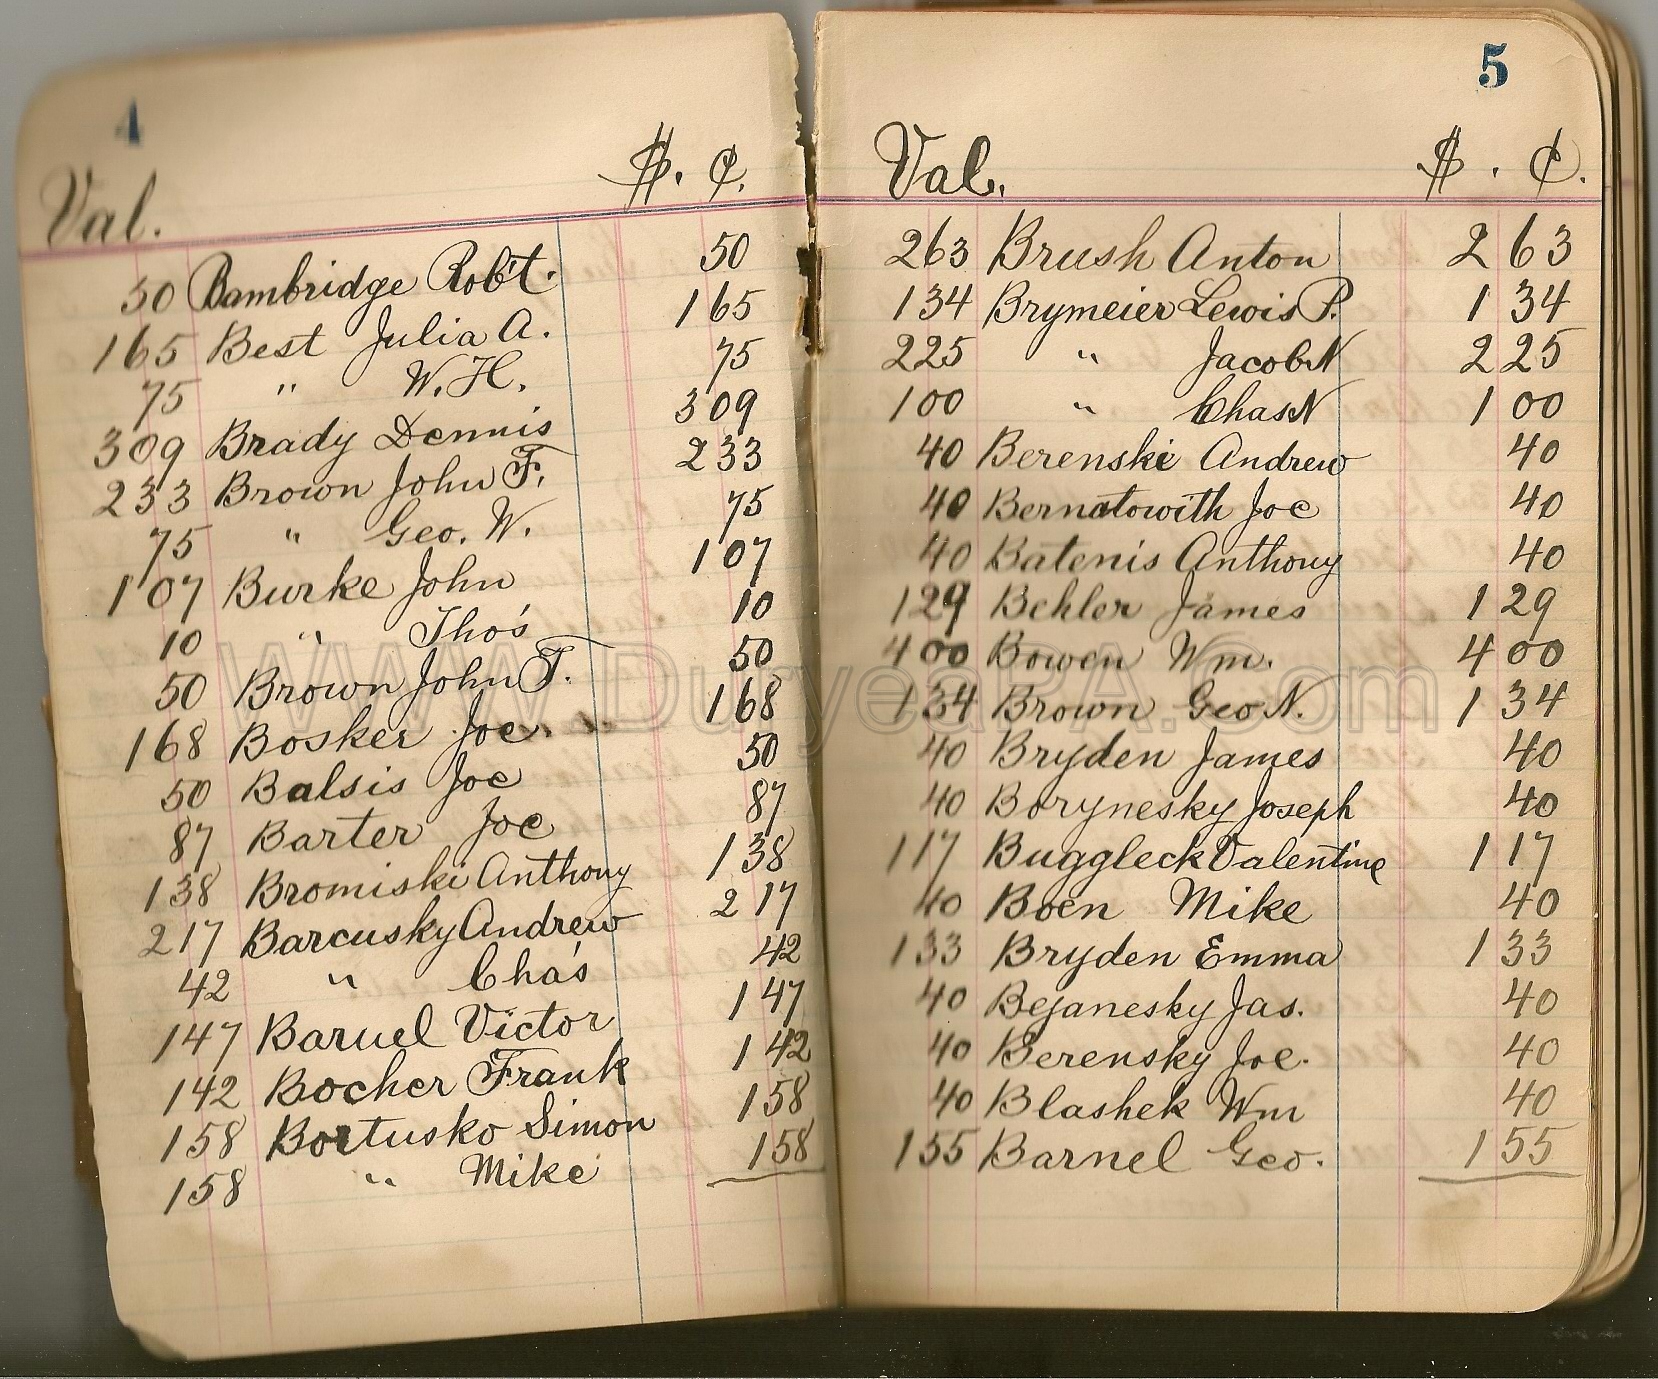 4
Val. $. ¢.
50 Bambridge Rob't. 50
165 Best Julia A. 165
75 " W. H. 75
309 Brady Dennis 309
233 Brown John F. 233
75 " Geo. W. 75
107 Burke John 107
10 " Tho's 10
50 Brown John T. 50
168 Bosker Joe. 168
50 Balsis Joe 50
87 Barter Joe 87
138 Bromiski Anthony 138
217 Barcusky Andrew 217
42 " Cha's 42
147 Baruel Victor 147
142 Bocher Frank 142
158 Bortusko Simon 158
158 " Mike 158
5
Val. $. ¢.
263 Brush Anton 263
134 Brymeier Lewis P. 134
225 " Jacob N 225
100 " Chas N 100
40 Berenski Andrew 40
40 Bernatowith Joe 40
40 Batenis Anthony 40
129 Behler James 129
400 Bowen Wm. 400
134 Brown Geo N. 134
40 Bryden James 40
40 Borynesky Joseph 40
117 Buggleck Valentine 117
40 Boen Mike 40
133 Bryden Emma 133
40 Bejanesky Jas. 40
40 Berensky Joe. 40
40 Blashek Wm 40
155 Barnel Geo. 155
WWW.DuryeaPA.Com